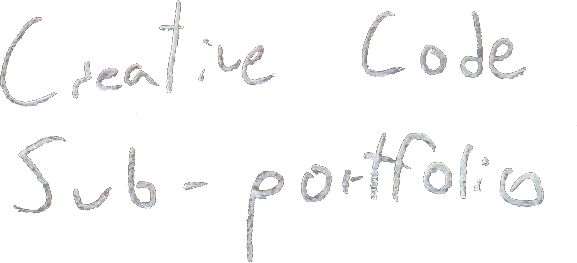 Creative Code
Sub-portfolio